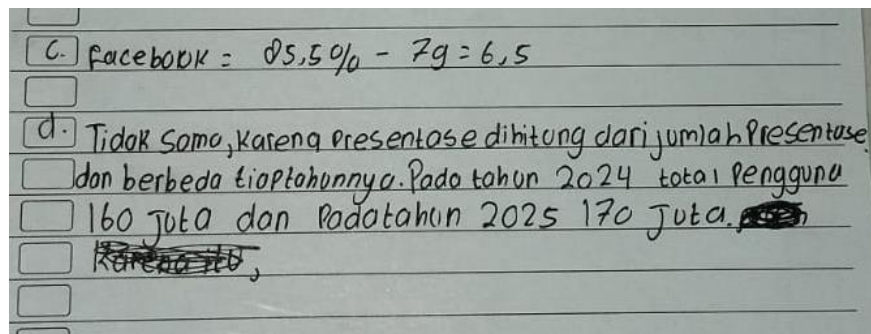 c. Facebook = 85,5% - 79 = 6,5
d. Tidak Sama, Karena Presentase dihitung dari jumlah Presentase
dan berbeda tiaptahunnya. Pada tahun 2024 total Pengguna
160 Juta dan Padatahun 2025 170 Juta.